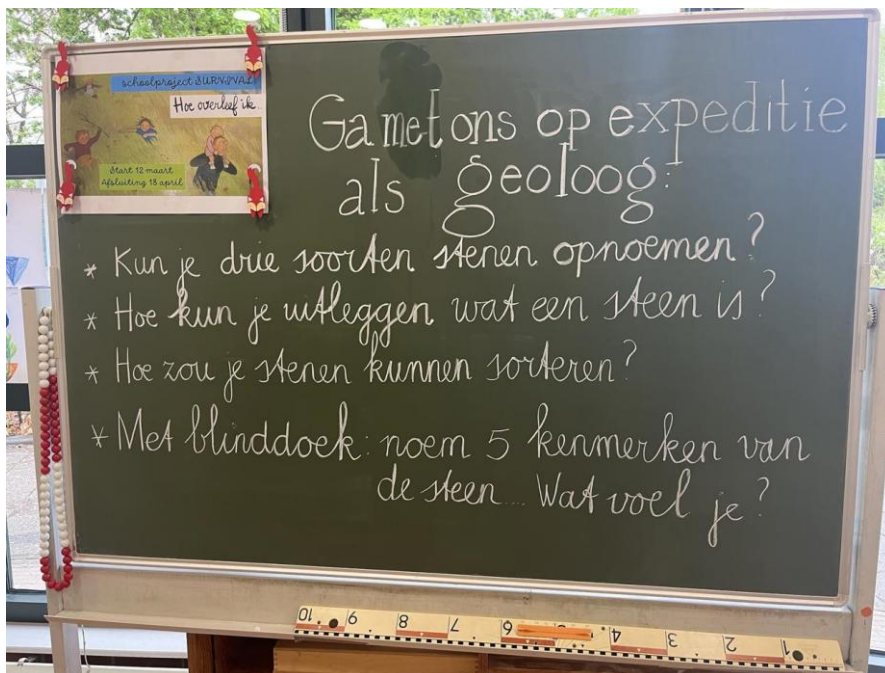 schoolproject SURVIVAL
Hoe overleef ik...
Start 12 maart
Afsluiting 18 april
Ga met ons op expeditie
als geoloog:
* Kun je drie soorten stenen opnoemen?
* Hoe kun je uitleggen wat een steen is?
* Hoe zou je stenen kunnen sorteren?
* Met blinddoek: noem 5 kenmerken van
de steen... Wat voel je?
10 9 8 7 6 4 3 2 1